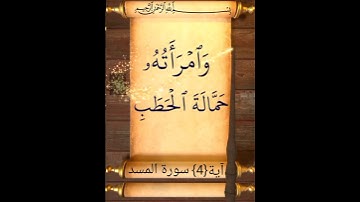 بسم الله الرحمن الرحيم
وَٱمْرَأَتُهُۥ
حَمَّالَةَ ٱلْحَطَبِ
آية{4} سورة المسد